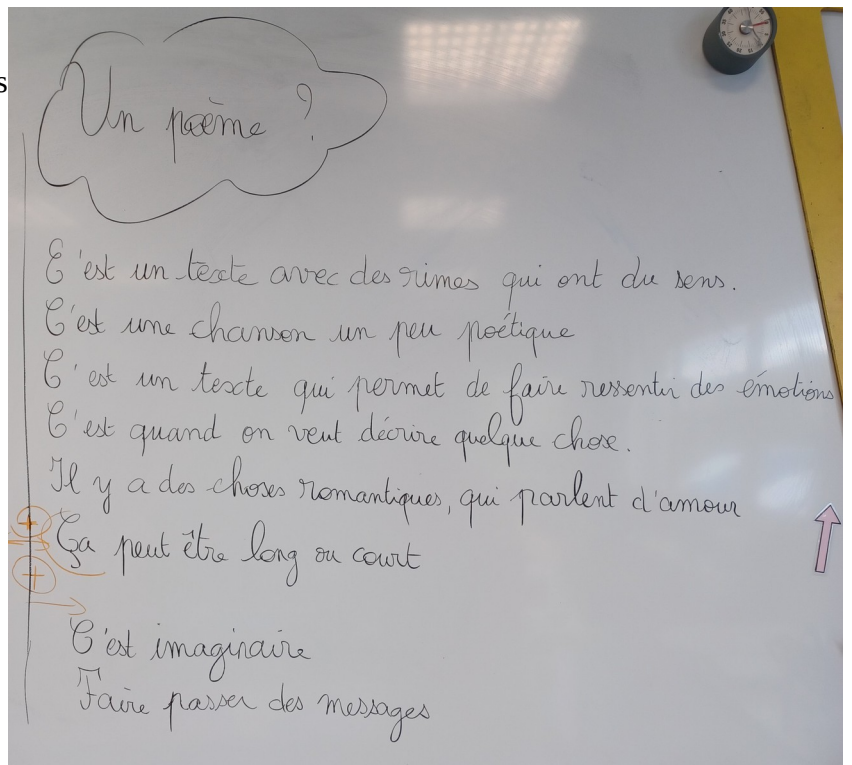 s
Un poème ?
C'est un texte avec des rimes qui ont du sens.
C'est une chanson un peu poétique
C'est un texte qui permet de faire ressentir des émotions
C'est quand on veut décrire quelque chose.
Il y a des choses romantiques, qui parlent d'amour
Ça peut être long ou court
C'est imaginaire
Faire passer des messages